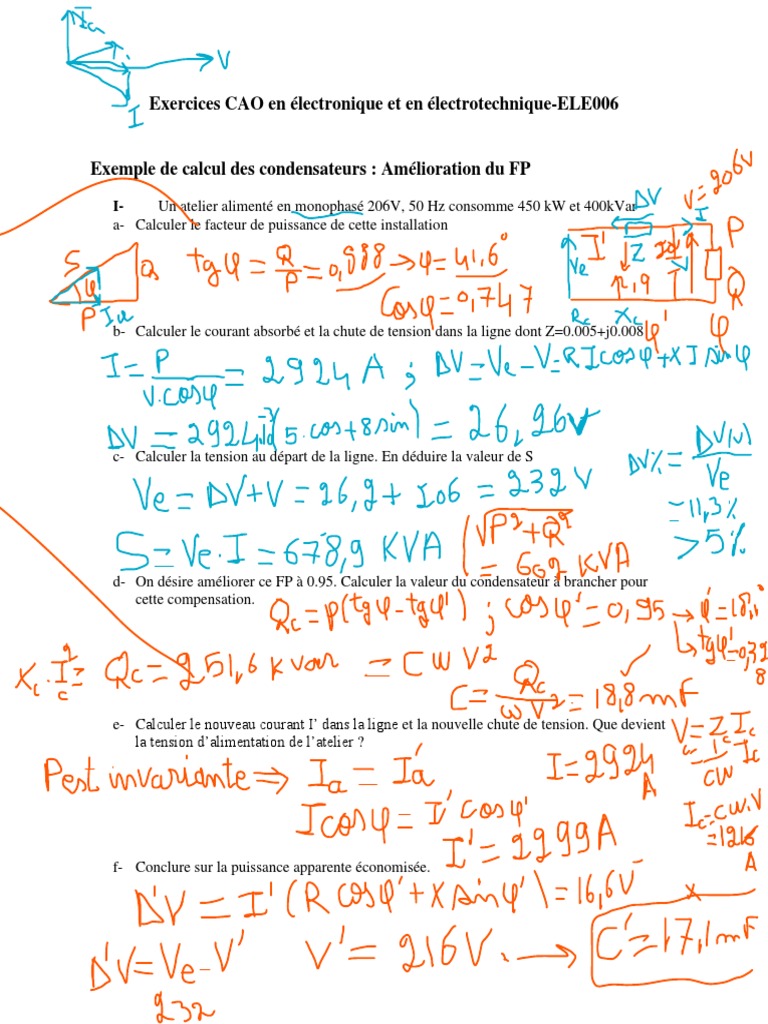 Ica
V
I
Exercices CAO en électronique et en électrotechnique-ELE006
Exemple de calcul des condensateurs : Amélioration du FP
I- Un atelier alimenté en monophasé 206V, 50 Hz consomme 450 kW et 400kVar
a- Calculer le facteur de puissance de cette installation
V=206V
ΔV I
I' Z Ve V P Q
Rc Xc φ' φ
S Q φ P Ia
tgφ = Q/P = 0,888 → φ = 41,6°
Cosφ = 0,747
b- Calculer le courant absorbé et la chute de tension dans la ligne dont Z=0.005+j0.008
I = P/V.cosφ = 2924 A ; ΔV = Ve - V = RIcosφ + XIsinφ
ΔV = 2924.10^-3(5.cos+8sin) = 26,26V
c- Calculer la tension au départ de la ligne. En déduire la valeur de S
ΔV% = ΔV(v)/Ve
= 11,3%
> 5%
Ve = ΔV+V = 26,2 + 106 = 232 V
S = Ve.I = 678,9 KVA
√P²+Q²
= 602 KVA
d- On désire améliorer ce FP à 0.95. Calculer la valeur du condensateur à brancher pour
cette compensation.
Qc = P(tgφ-tgφ') ; cosφ' = 0,95 → φ' = 18,1°
↳ tgφ' = 0,328
Xc.Ic² = Qc = 251,6 kvar = CWV²
C = Qc/ωV² = 18,8mF
e- Calculer le nouveau courant I' dans la ligne et la nouvelle chute de tension. Que devient
la tension d'alimentation de l'atelier ?
V = Zc Ic
= 1/CW Ic
Ic = CW.V
= 1216 A
P est invariante ⇒ Ia = I'a
I = 2924 A
Icosφ = I' cosφ'
I' = 2299A
f- Conclure sur la puissance apparente économisée.
Δ'V = I'(R cosφ' + X sinφ') = 16,6V
Δ'V = Ve - V' V' = 216V. → C' = 17,1mF
232